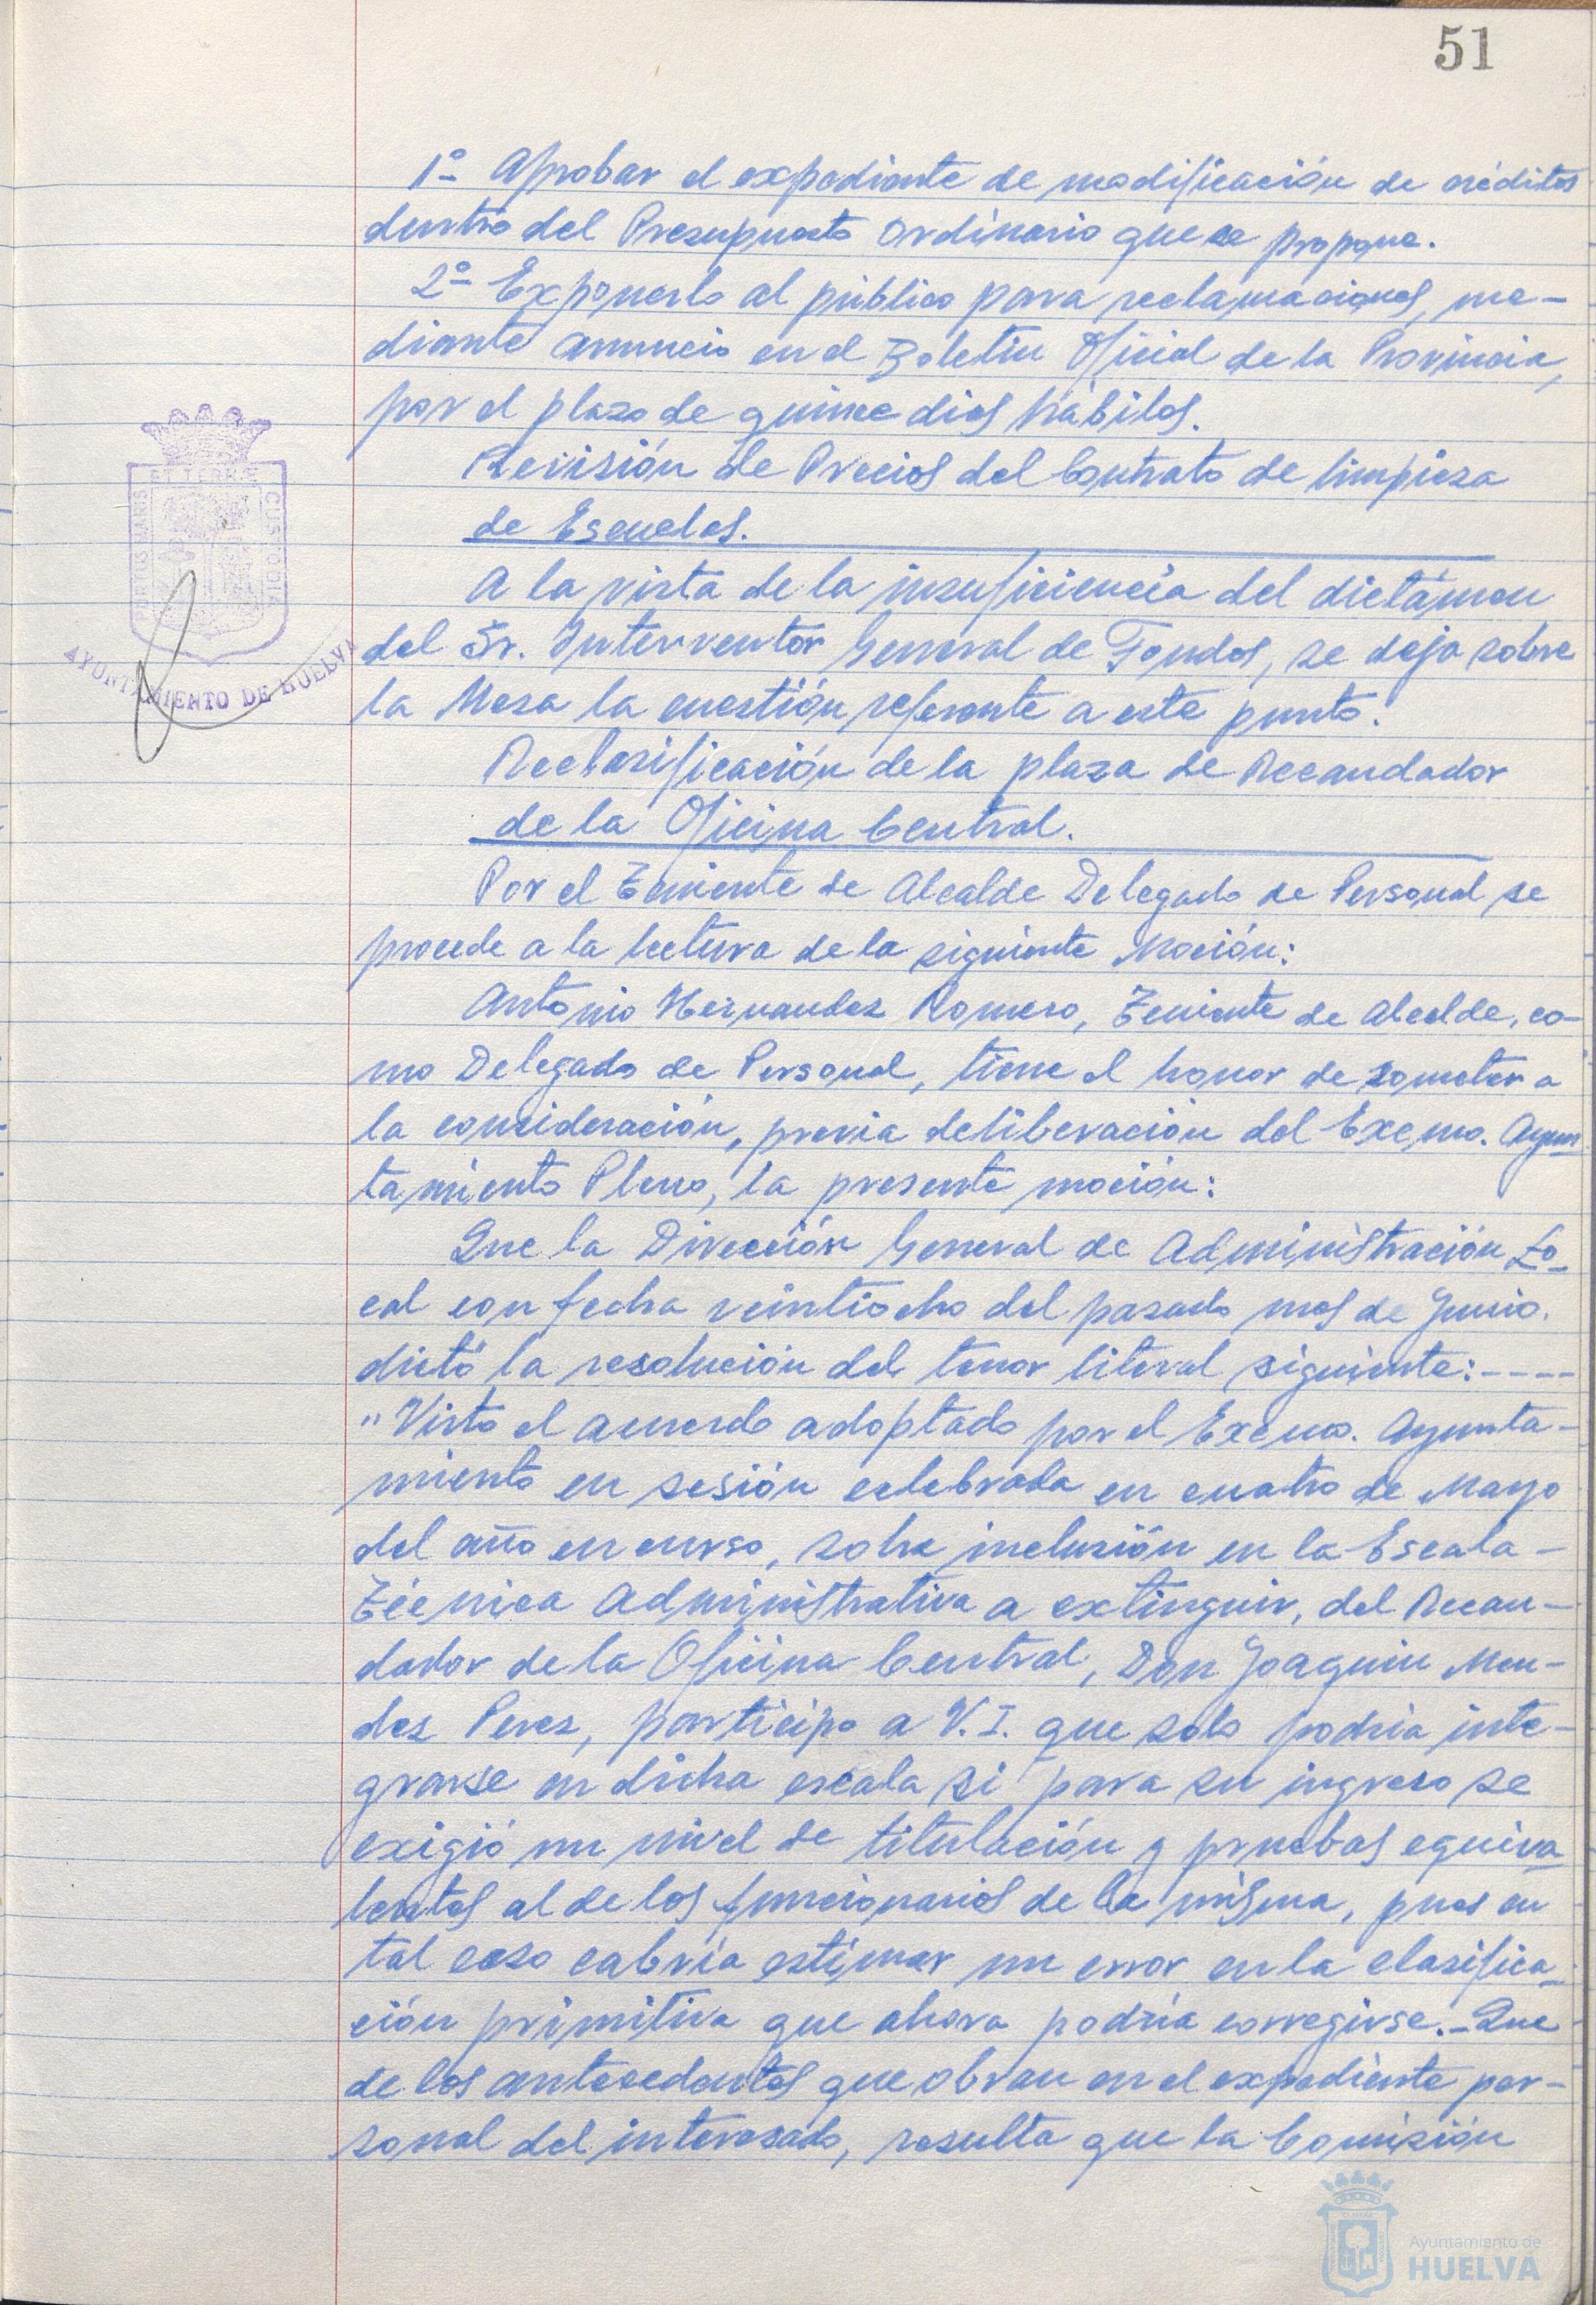 51
1º- Aprobar el expediente de modificación de créditos
dentro del Presupuesto Ordinario que se propone.
2º- Exponerlo al público para reclamaciones, me-
diante anuncio en el Boletin Oficial de la Provincia,
por el plazo de quince dias hábiles.
Revisión de Precios del Contrato de limpieza
de Escuelas.
A la vista de la insuficiencia del dictámen
del Sr. Interventor General de Fondos, se deja sobre
la Mesa la cuestión referente a este punto.
Reclasificación de la plaza de Recaudador
de la Oficina Central.
Por el Teniente de Alcalde Delegado de Personal se
procede a la lectura de la siguiente Moción:
Antonio Hernandez Romero, Teniente de Alcalde, co-
mo Delegado de Personal, tiene el honor de someter a
la consideración, previa deliberación del Excmo. Ayun-
tamiento Pleno, la presente moción:
Que la Dirección General de Administración Lo-
cal con fecha veintiocho del pasado mes de Junio.
dictó la resolución del tenor literal siguiente:----
"Visto el acuerdo adoptado por el Excmo. Ayunta-
miento en sesión celebrada en cuatro de Mayo
del año en curso, sobre inclusión en la Escala-
Técnica Administrativa a extinguir, del Recau-
dador de la Oficina Central, Don Joaquin Men-
dez Perez, participo a V.I. que solo podria inte-
grarse en dicha escala si para su ingreso se
exigió un nivel de titulación y pruebas equiva-
lentes al de los funcionarios de la misma, pues en
tal caso cabría estimar un error en la clasifica-
ción primitiva que ahora podría corregirse.-Que
de los antecedentes que obran en el expediente per-
sonal del interesado, resulta que la Comisión
PORTUS MARIS ET TERRE CUSTODIA
AYUNTAMIENTO DE HUELVA
Ayuntamiento de
HUELVA